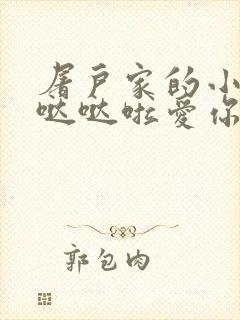 屠户家的小
哒哒啦爱你
郭包肉